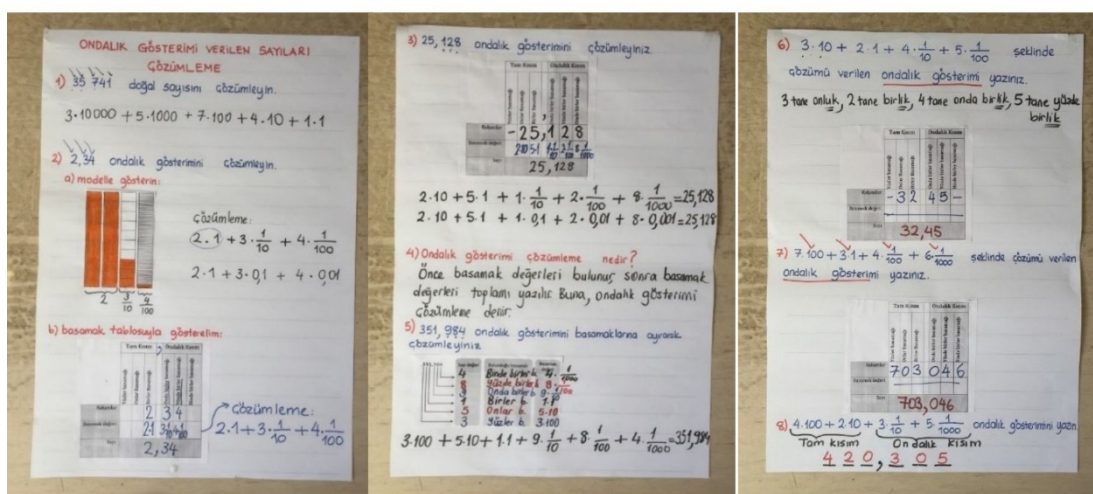 ONDALIK GÖSTERİMİ VERİLEN SAYILARI
ÇÖZÜMLEME
1) 35 741 doğal sayısını çözümleyin.
3·10000 + 5·1000 + 7·100 + 4·10 + 1·1
2) 2,34 ondalık gösterimini çözümleyin.
a) modelle gösterin:
Çözümleme:
2·1 + 3·1/10 + 4·1/100
2·1 + 3·0,1 + 4·0,01
2 3/10 4/100
b) basamak tablosuyla gösterelim:
Tam Kısım , Ondalık Kısım
2 3 4
2,34
Çözümleme:
2·1 + 3·1/10 + 4·1/100
3) 25,128 ondalık gösterimini çözümleyiniz.
Tam Kısım Ondalık Kısım
-25,128
25,128
2·10 + 5·1 + 1·1/10 + 2·1/100 + 8·1/1000 = 25,128
2·10 + 5·1 + 1·0,1 + 2·0,01 + 8·0,001 = 25,128
4) Ondalık gösterimi çözümleme nedir?
Önce basamak değerleri bulunur, sonra basamak
değerleri toplamı yazılır. Buna, ondalık gösterimi
çözümleme denir.
5) 351,984 ondalık gösterimini basamaklarına ayırarak
çözümleyiniz
4 Binde birler b. 4·1/1000
8 Yüzde birler b. 8·1/100
Onda birler b. 9·1/10
1 Birler b.
5 Onlar b. 5·10
3 Yüzler b. 3·100
3·100 + 5·10 + 1·1 + 9·1/10 + 8·1/100 + 4·1/1000 = 351,984
6) 3·10 + 2·1 + 4·1/10 + 5·1/100 şeklinde
çözümü verilen ondalık gösterimi yazınız.
3 tane onluk, 2 tane birlik, 4 tane onda birlik, 5 tane yüzde
birlik
Tam Kısım Ondalık Kısım
-32 45-
32,45
7) 7·100 + 3·1 + 4·1/100 + 6·1/1000 şeklinde çözümü verilen
ondalık gösterimi yazınız.
Tam Kısım Ondalık Kısım
703 046
703,046
8) 4·100 + 2·10 + 3·1/10 + 5·1/1000 ondalık gösterimini yazın
Tam kısım Ondalık kısım
4 2 0, 3 0 5